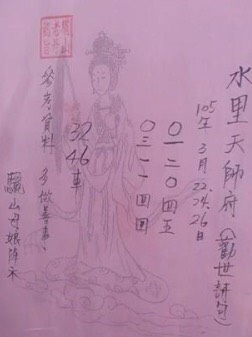 水里天師府(勸世詩句)
105年3月22.24.26日
〇一二〇四五
〇三一一回回
32
46車
參考資料 多做善事
驪山母娘降示